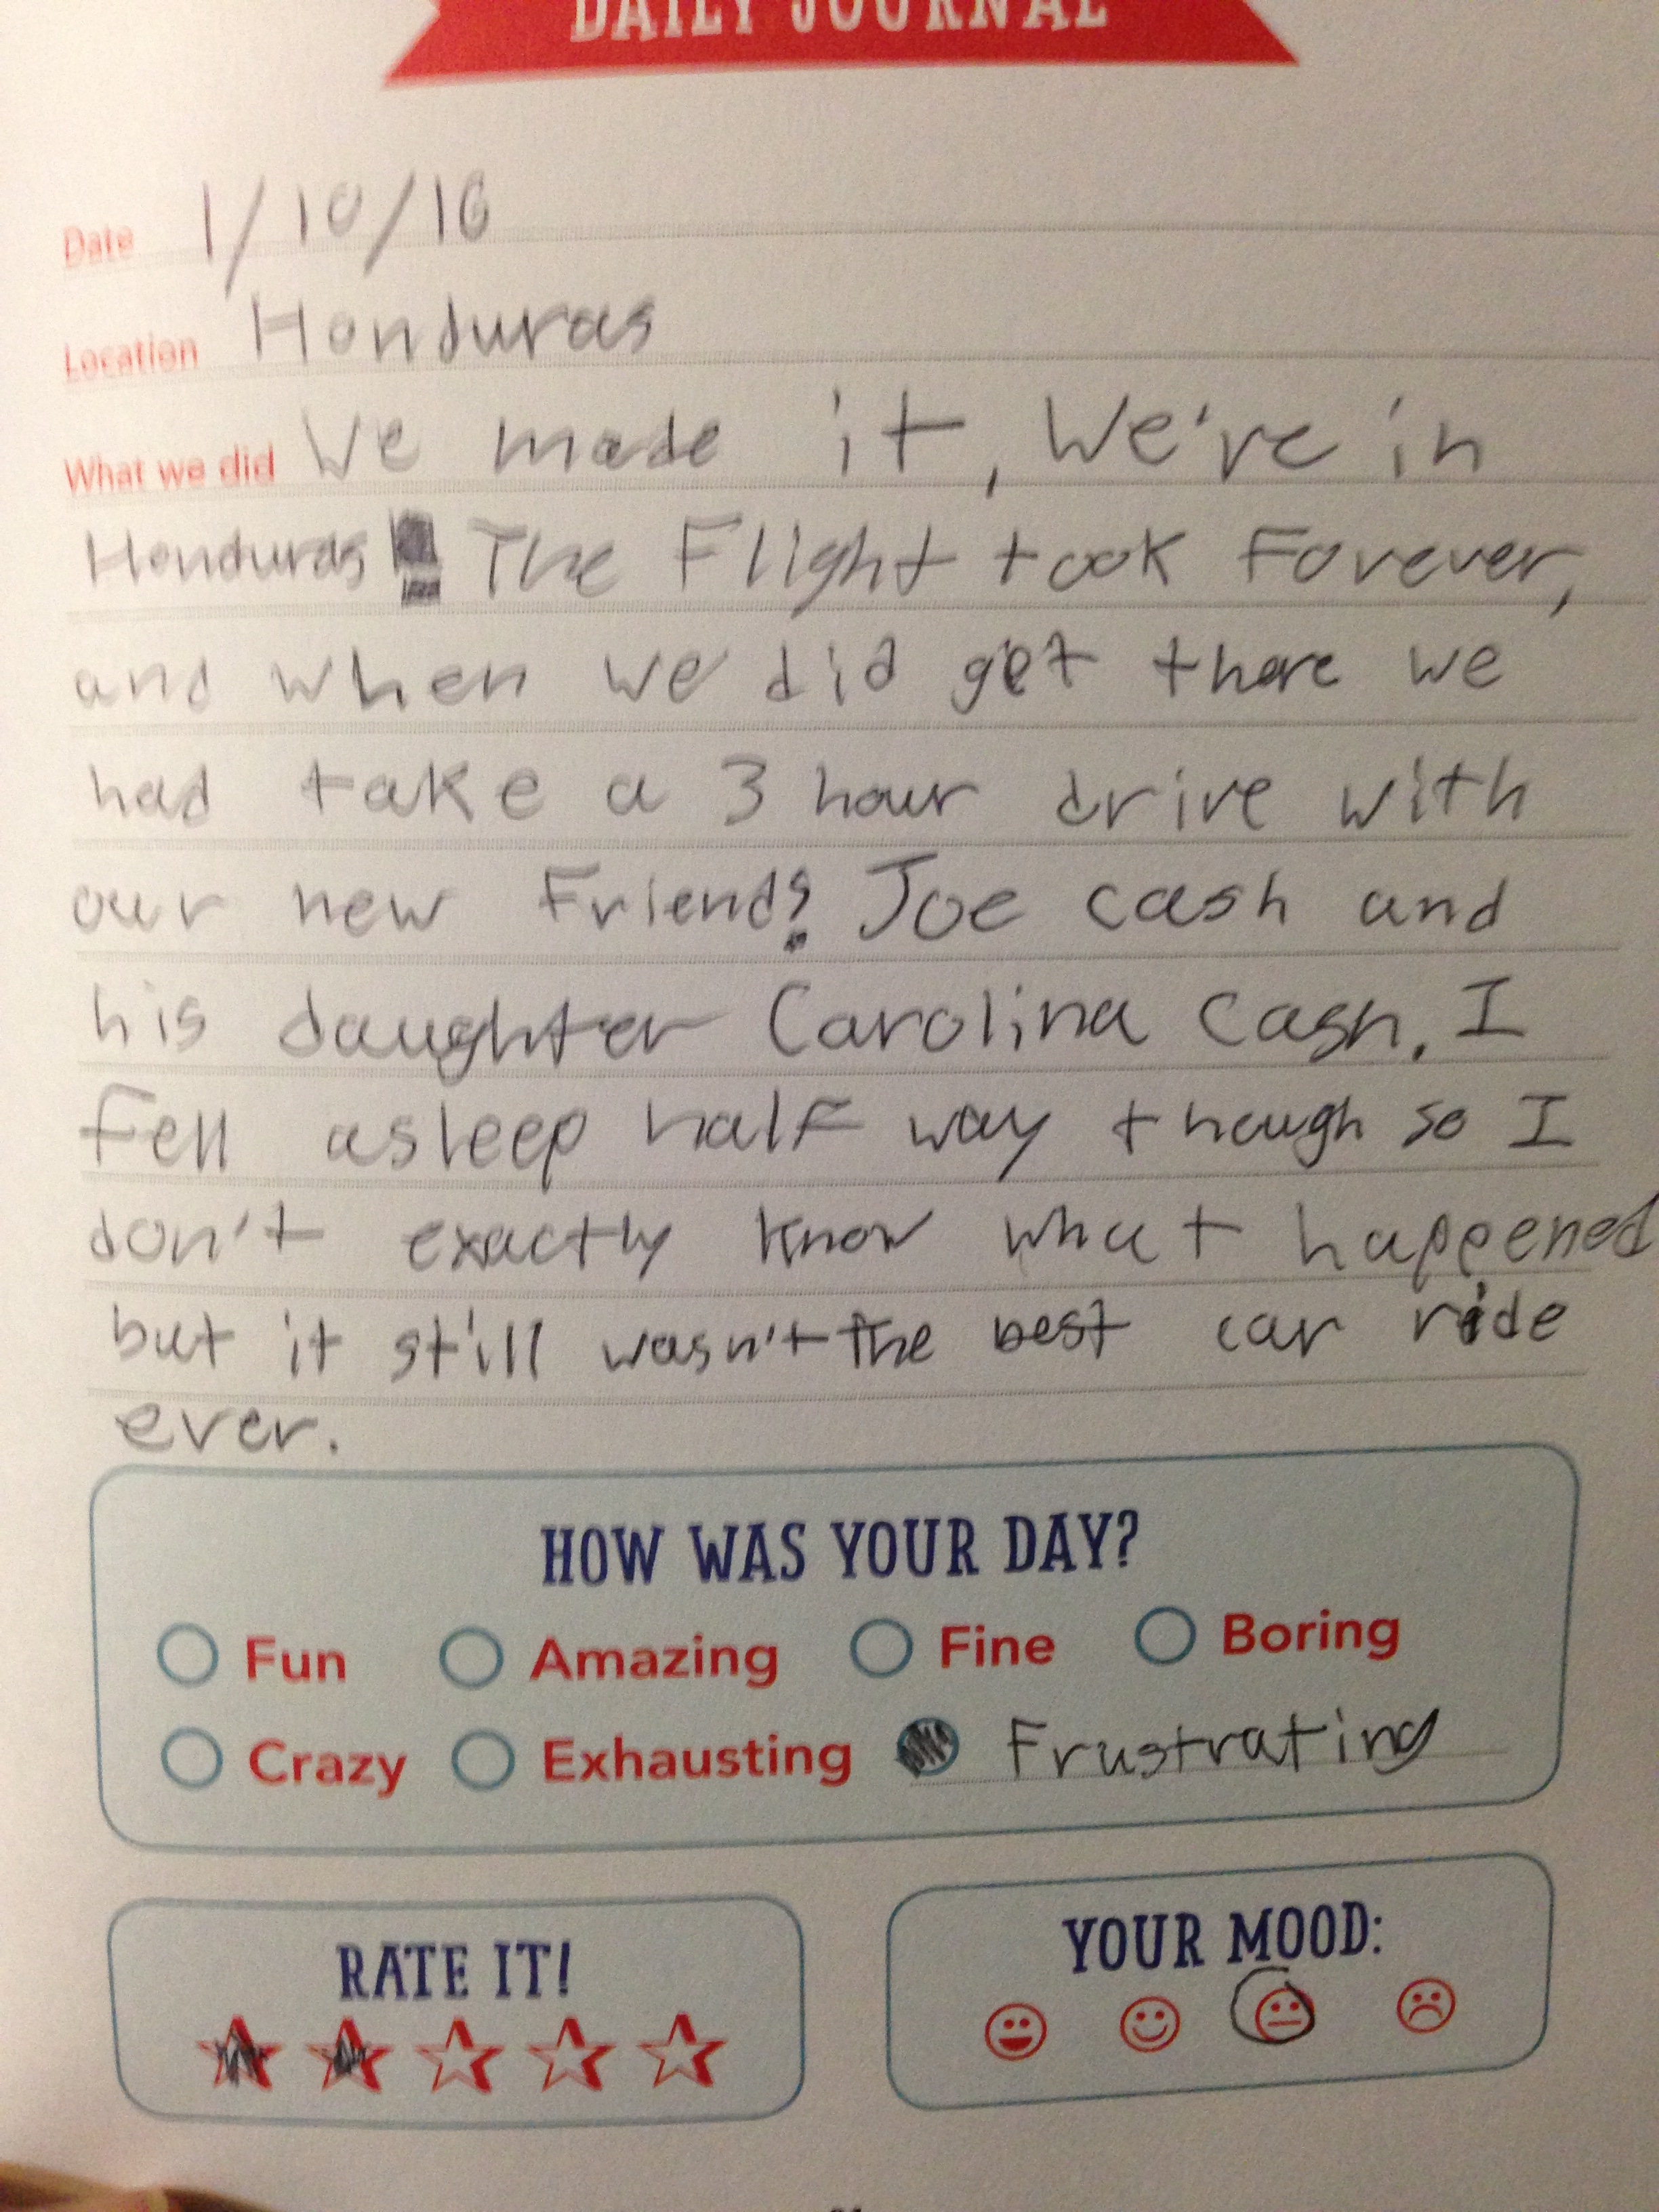 DAILY JOURNAL
Date 1/10/16
Location Honduras
What we did We made it, We're in
Honduras! The Flight took Forever,
and when we did get there we
had take a 3 hour drive with
our new Friends: Joe cash and
his daughter Carolina Cash. I
Fell asleep half way though so I
don't exactly know what happened
but it still wasn't the best car ride
ever.
HOW WAS YOUR DAY?
Fun Amazing Fine Boring
Crazy Exhausting Frustrating
RATE IT!
YOUR MOOD: